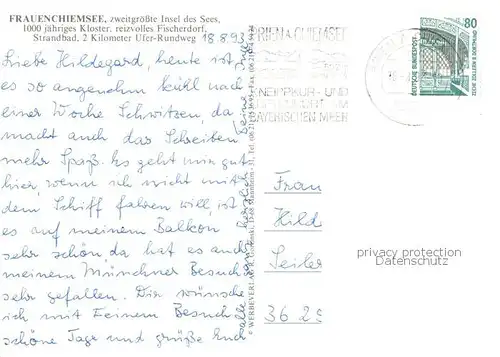 FRAUENCHIEMSEE, zweitgrößte Insel des Sees,
1000 jähriges Kloster, reizvolles Fischerdorf,
Strandbad, 2 Kilometer Ufer-Rundweg
18.8.93
Liebe Hildegard, heute ist
es so angenehm kühl nach
einer Woche Schwitzen, da
macht auch das Schreiben
mehr Spaß. Es geht mir gut
hier, wenn ich nicht mit
dem Schiff fahren will, ist
es auf meinem Balkon
sehr schön, da hat es auch
meinem Münchner Besuch
sehr gefallen. Dir wünsche
ich mit Deinem Besuch
schöne Tage und grüße Euch
alle ganz herzlich
PRIEN A. CHIEMSEE
KNEIPPKUR- UND
BAYERISCHEN MEER
80
DEUTSCHE BUNDESPOST
ZECHE ZOLLERN II DORTMUND
© WERBEVERLAG
Mannheim
Frau
Hild
Seiler
3625
privacy protection
Datenschutz